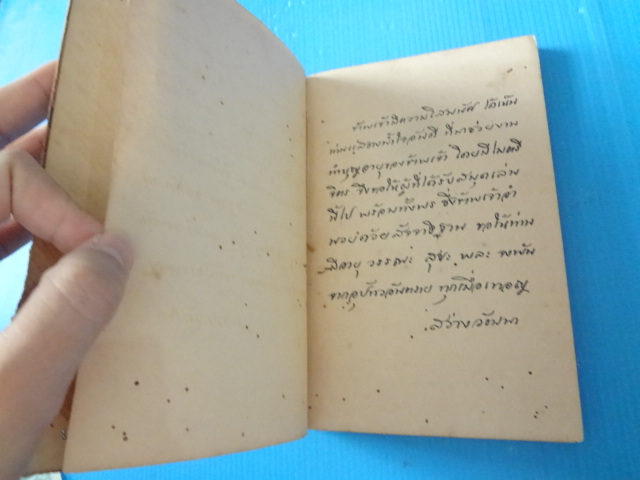 ข้าพเจ้ามีความโสมนัส ได้เห็น
ท่านกุศลมน้ำใจอันดี ที่มาช่วยงาน
ทำบุญอายุของข้าพเจ้า โดยมีไมตรี
จิตร จึงขอให้ผู้ที่ได้รับสมุดเล่ม
นี้ไป พร้อมทั้งพร ซึ่งข้าพเจ้าอำ
นวยด้วย สัจจาธิฐาน ขอให้ท่าน
มีอายุ วรรณะ สุขะ พละ พ้นภัย
จากอุปัทวอันตราย ทุกเมื่อเทอญ
สว่างวัฒนา